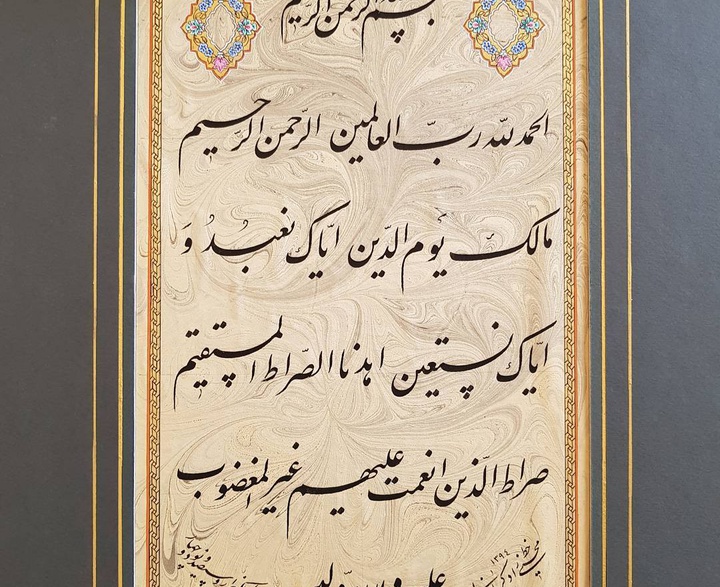 بسم الرحمن الرحیم
الحمد لله ربّ العالمین الرّحمن الرّحیم
مالک یوم الدّین ایّاک نعبدُ وَ
ایّاک نستعین اهدنا الصّراط المستقیم
صراط الّذین انعمت علیهم غیر المغضوب
علیهم و
۱۳۹۴